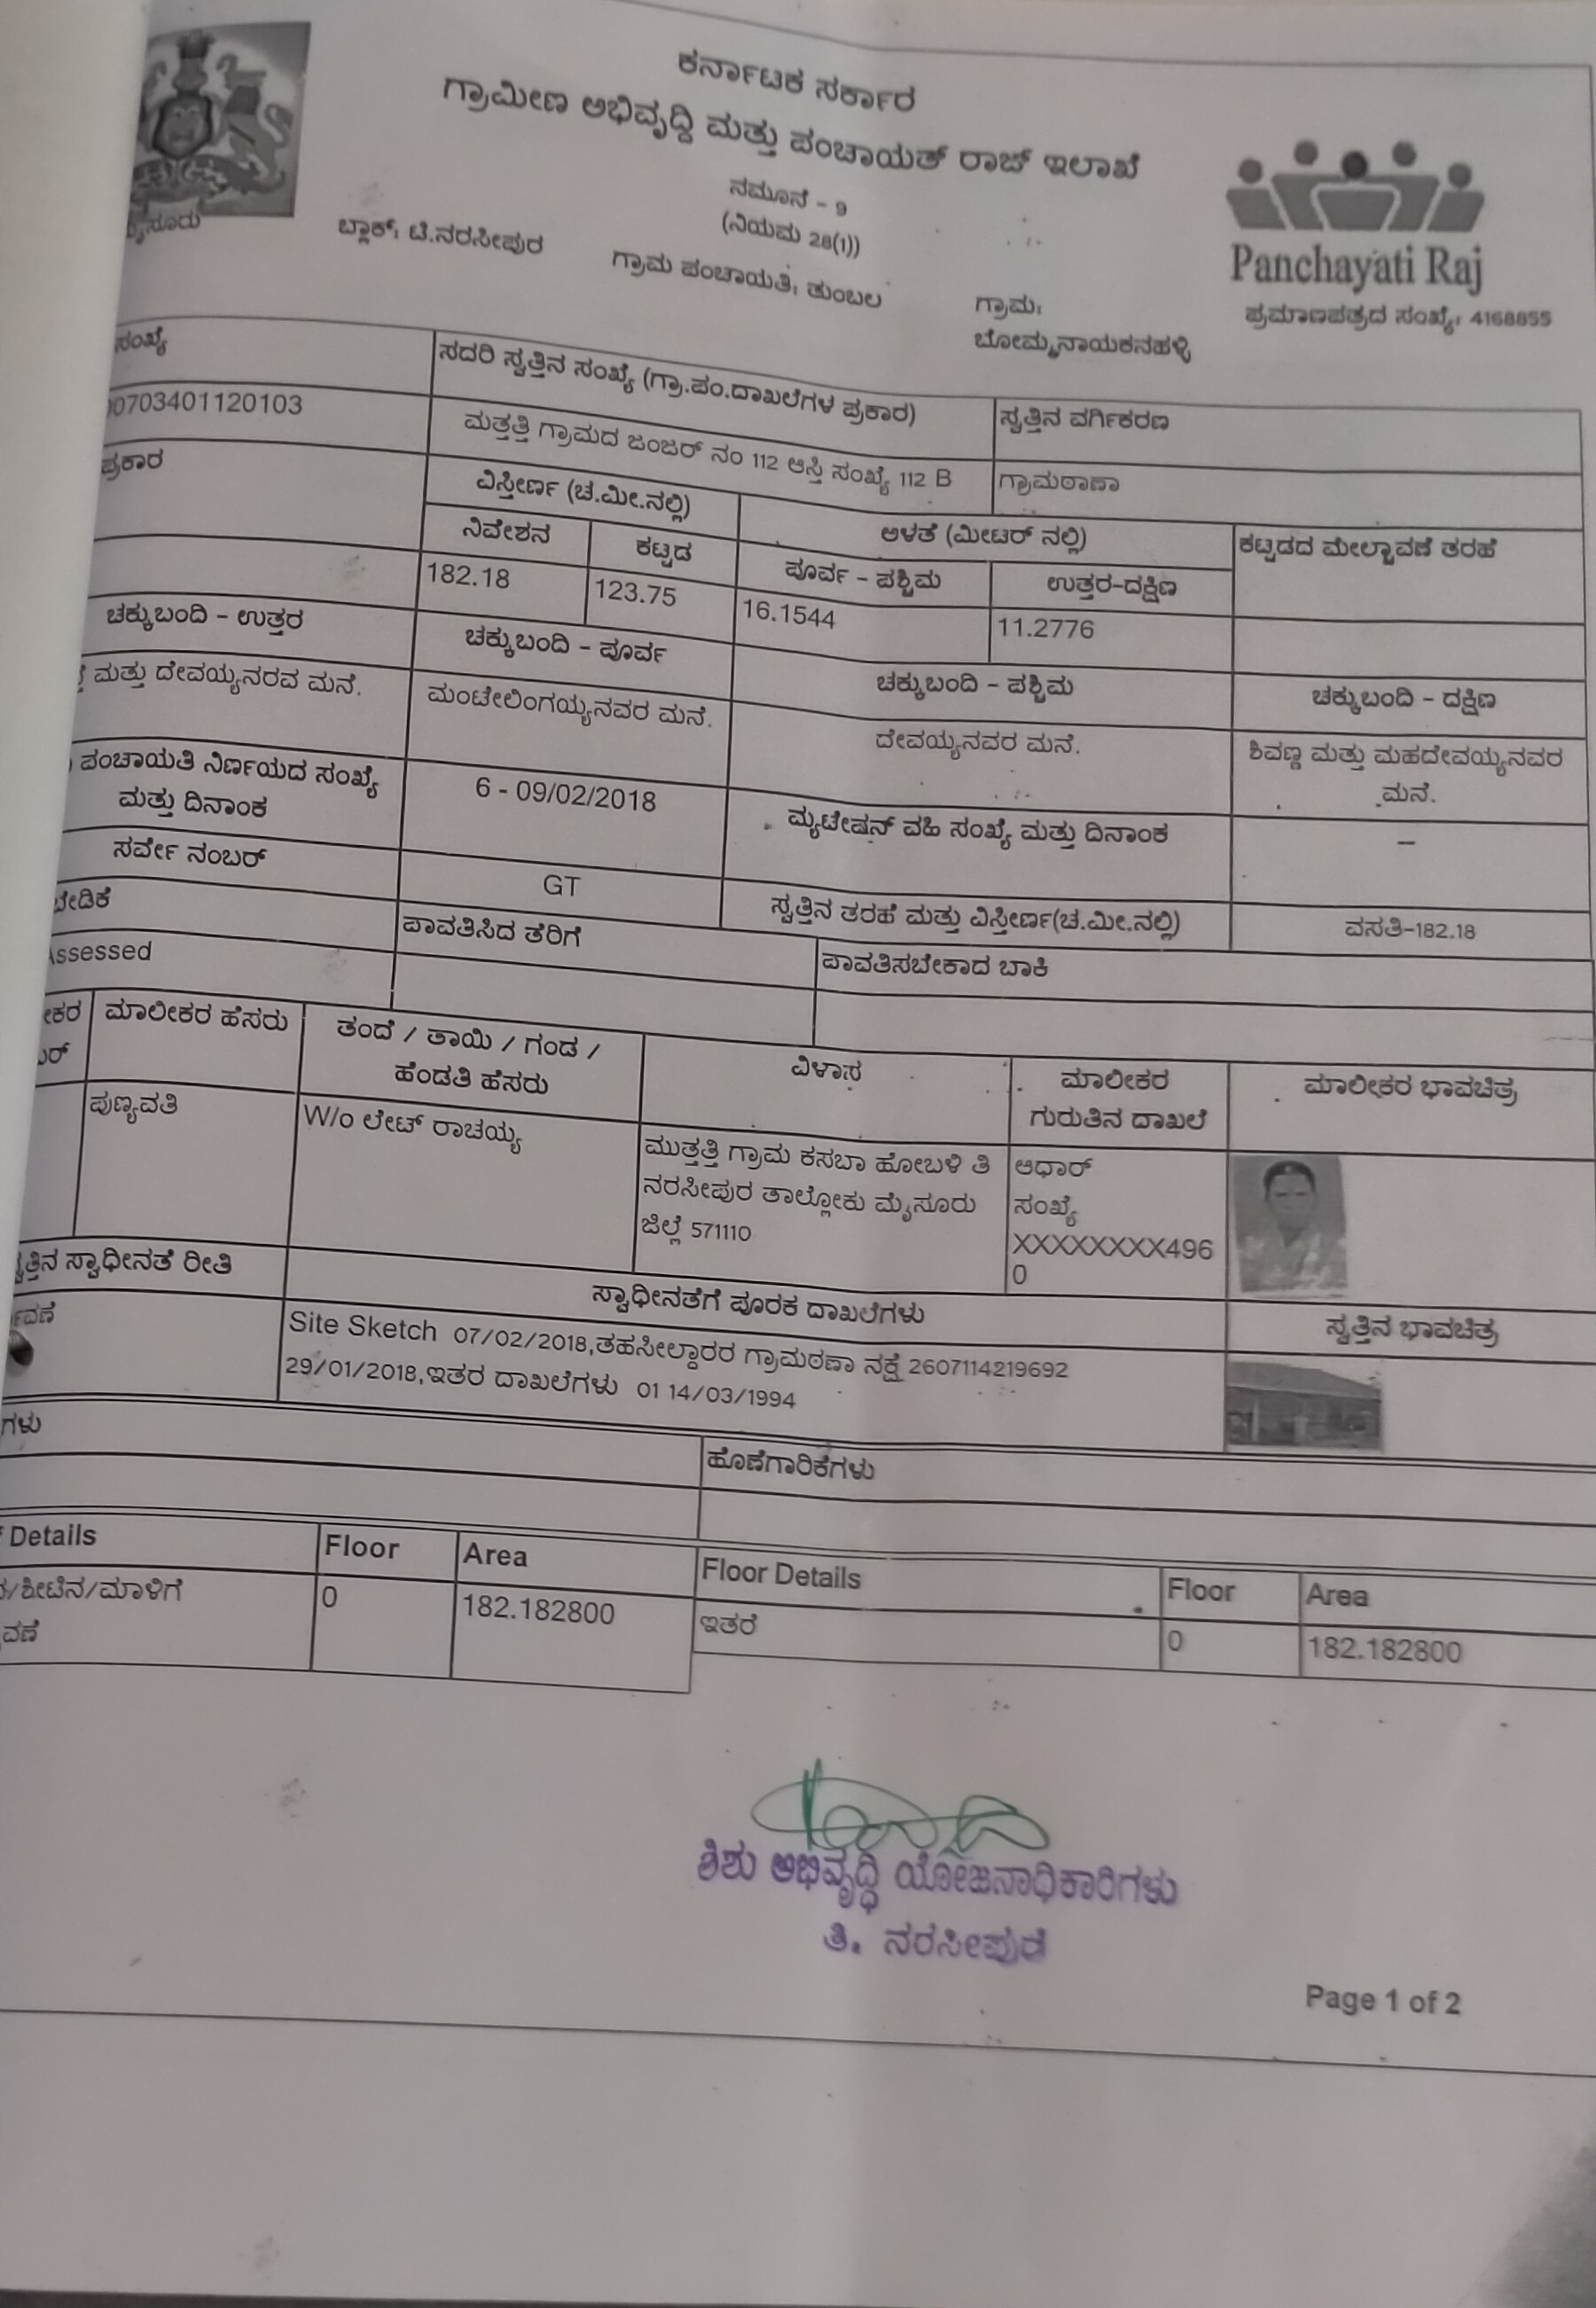 ಕರ್ನಾಟಕ ಸರ್ಕಾರ
ಗ್ರಾಮೀಣ ಅಭಿವೃದ್ಧಿ ಮತ್ತು ಪಂಚಾಯತ್ ರಾಜ್ ಇಲಾಖೆ
ನಮೂನೆ - 9
(ನಿಯಮ 28(1))
Panchayati Raj
ಬ್ಲಾಕ್: ಟಿ.ನರಸೀಪುರ ಗ್ರಾಮ ಪಂಚಾಯತಿ: ತುಂಬಲ ಗ್ರಾಮ:
ಬೋಮ್ಮನಾಯಕನಹಳ್ಳಿ
ಪ್ರಮಾಣಪತ್ರದ ಸಂಖ್ಯೆ: 4168855
ಸಂಖ್ಯೆ ಸದರಿ ಸ್ವತ್ತಿನ ಸಂಖ್ಯೆ (ಗ್ರಾ.ಪಂ.ದಾಖಲೆಗಳ ಪ್ರಕಾರ) ಸ್ವತ್ತಿನ ವರ್ಗಿಕರಣ
00703401120103 ಮತ್ತತ್ತಿ ಗ್ರಾಮದ ಜಂಜರ್ ನಂ 112 ಆಸ್ತಿ ಸಂಖ್ಯೆ 112 B ಗ್ರಾಮಠಾಣಾ
ಪ್ರಕಾರ ವಿಸ್ತೀರ್ಣ (ಚ.ಮೀ.ನಲ್ಲಿ) ಅಳತೆ (ಮೀಟರ್ ನಲ್ಲಿ) ಕಟ್ಟಡದ ಮೇಲ್ಚಾವಣೆ ತರಹೆ
ನಿವೇಶನ ಕಟ್ಟಡ ಪೂರ್ವ - ಪಶ್ಚಿಮ ಉತ್ತರ-ದಕ್ಷಿಣ
182.18 123.75 16.1544 11.2776
ಚಕ್ಕುಬಂದಿ - ಉತ್ತರ ಚಕ್ಕುಬಂದಿ - ಪೂರ್ವ ಚಕ್ಕುಬಂದಿ - ಪಶ್ಚಿಮ ಚಕ್ಕುಬಂದಿ - ದಕ್ಷಿಣ
ಮತ್ತು ದೇವಯ್ಯನರವ ಮನೆ. ಮಂಟೇಲಿಂಗಯ್ಯನವರ ಮನೆ. ದೇವಯ್ಯನವರ ಮನೆ. ಶಿವಣ್ಣ ಮತ್ತು ಮಹದೇವಯ್ಯನವರ
ಮನೆ.
ಪಂಚಾಯತಿ ನಿರ್ಣಯದ ಸಂಖ್ಯೆ 6 - 09/02/2018 ಮ್ಯುಟೇಷನ್ ವಹಿ ಸಂಖ್ಯೆ ಮತ್ತು ದಿನಾಂಕ --
ಮತ್ತು ದಿನಾಂಕ
ಸರ್ವೇ ನಂಬರ್ GT ಸ್ವತ್ತಿನ ತರಹೆ ಮತ್ತು ವಿಸ್ತೀರ್ಣ(ಚ.ಮೀ.ನಲ್ಲಿ) ವಸತಿ-182.18
ಬೇಡಿಕೆ ಪಾವತಿಸಿದ ತೆರಿಗೆ ಪಾವತಿಸಬೇಕಾದ ಬಾಕಿ
Assessed
ಮಾಲೀಕರ ಹೆಸರು ತಂದೆ / ತಾಯಿ / ಗಂಡ / ವಿಳಾಸ ಮಾಲೀಕರ ಮಾಲೀಕರ ಭಾವಚಿತ್ರ
ಹೆಂಡತಿ ಹೆಸರು ಗುರುತಿನ ದಾಖಲೆ
ಪುಣ್ಯವತಿ W/o ಲೇಟ್ ರಾಚಯ್ಯ ಮುತ್ತತ್ತಿ ಗ್ರಾಮ ಕಸಬಾ ಹೋಬಳಿ ತಿ ಆಧಾರ್
ನರಸೀಪುರ ತಾಲ್ಲೋಕು ಮೈಸೂರು ಸಂಖ್ಯೆ
ಜಿಲ್ಲೆ 571110 XXXXXXXX496
0
ಸ್ವತ್ತಿನ ಸ್ವಾಧೀನತೆ ರೀತಿ ಸ್ವಾಧೀನತೆಗೆ ಪೂರಕ ದಾಖಲೆಗಳು ಸ್ವತ್ತಿನ ಭಾವಚಿತ್ರ
Site Sketch 07/02/2018,ತಹಸೀಲ್ದಾರರ ಗ್ರಾಮಠಣಾ ನಕ್ಷೆ 2607114219692
29/01/2018,ಇತರ ದಾಖಲೆಗಳು 01 14/03/1994
ಹೊಣೆಗಾರಿಕೆಗಳು
Details Floor Area Floor Details Floor Area
/ಶೀಟಿನ/ಮಾಳಿಗೆ 0 182.182800 ಇತರೆ 0 182.182800
ಶಿಶು ಅಭಿವೃದ್ಧಿ ಯೋಜನಾಧಿಕಾರಿಗಳು
ತಿ. ನರಸೀಪುರ
Page 1 of 2